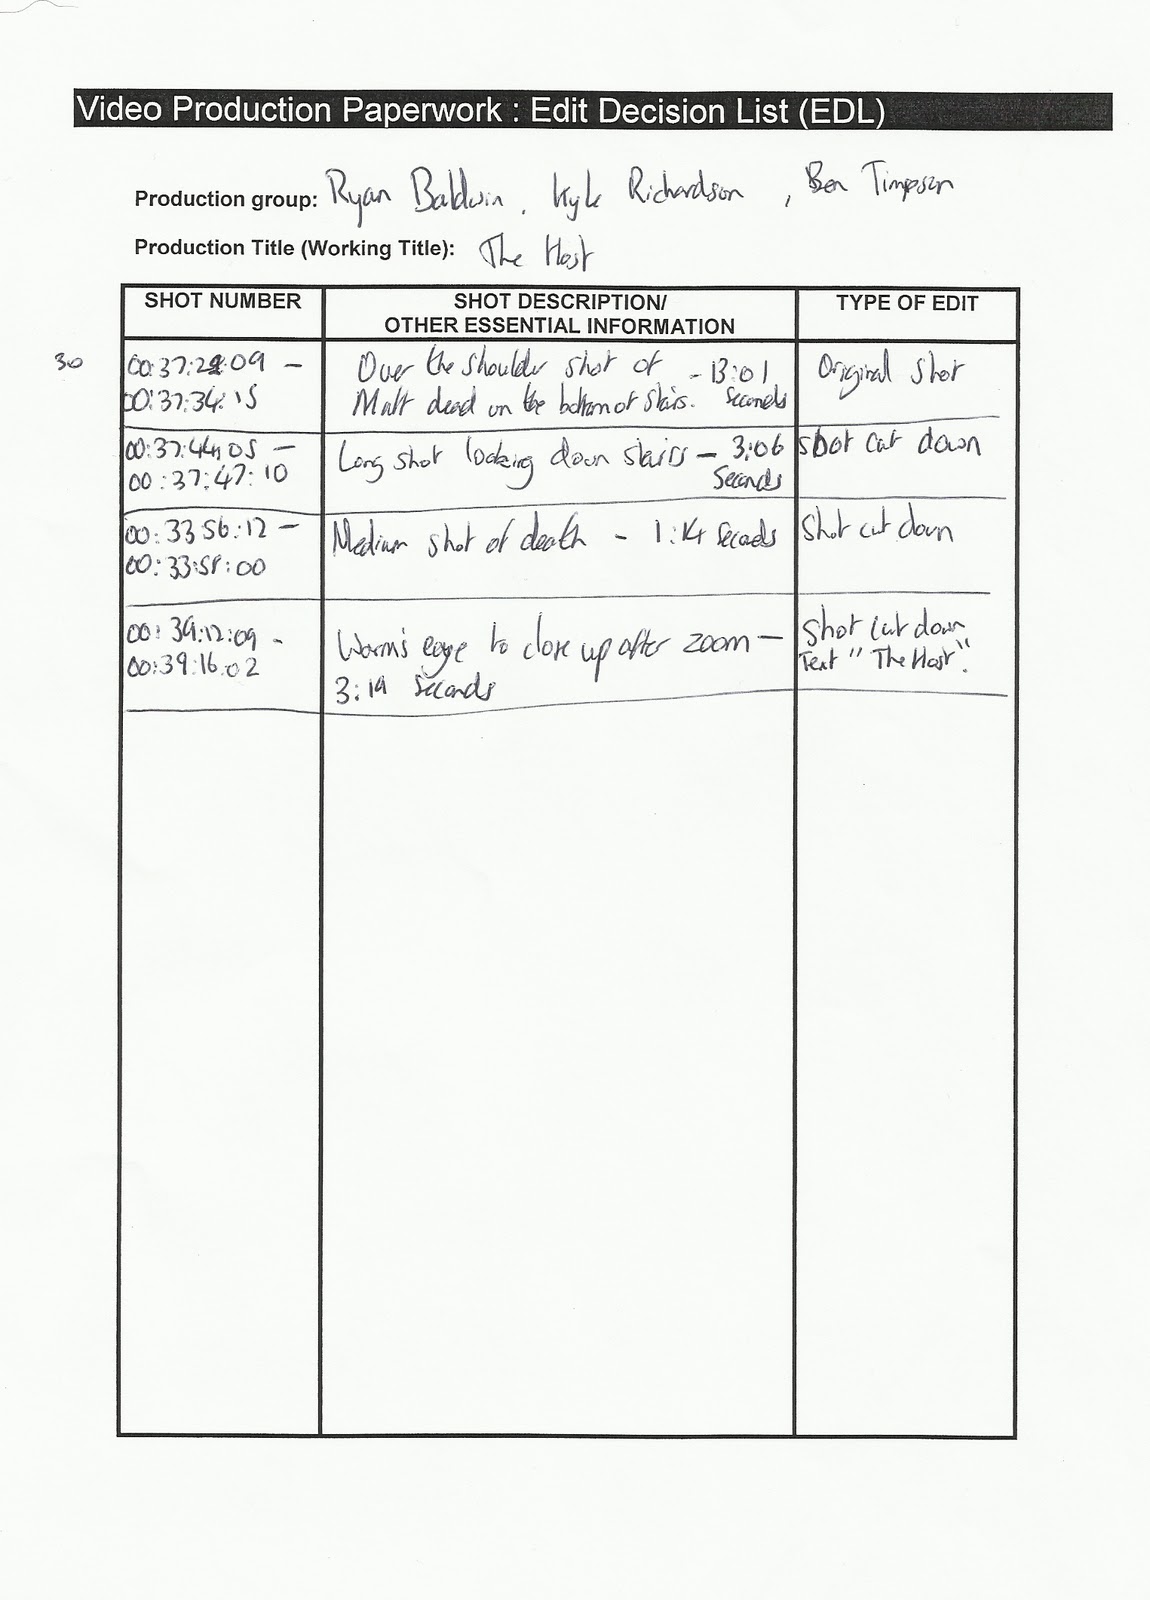 Video Production Paperwork : Edit Decision List (EDL)
Production group: Ryan Baldwin, Kyle Richardson, Ben Timpson
Production Title (Working Title): The Host
SHOT NUMBER
SHOT DESCRIPTION/
OTHER ESSENTIAL INFORMATION
TYPE OF EDIT
30
00:37:22:09 –
00:37:34:15
Over the shoulder shot of – 13:01
Matt dead on the bottom of stairs. Seconds
Original shot
00:37:44:05 –
00:37:47:10
Long shot looking down stairs – 3:06
Seconds
shot cut down
00:33:56:12 –
00:33:58:00
Medium shot of death – 1:14 seconds
Shot cut down
00:39:12:09 –
00:39:16:02
Worm's eye to close up after zoom –
3:19 seconds
Shot cut down
Text "The Host".